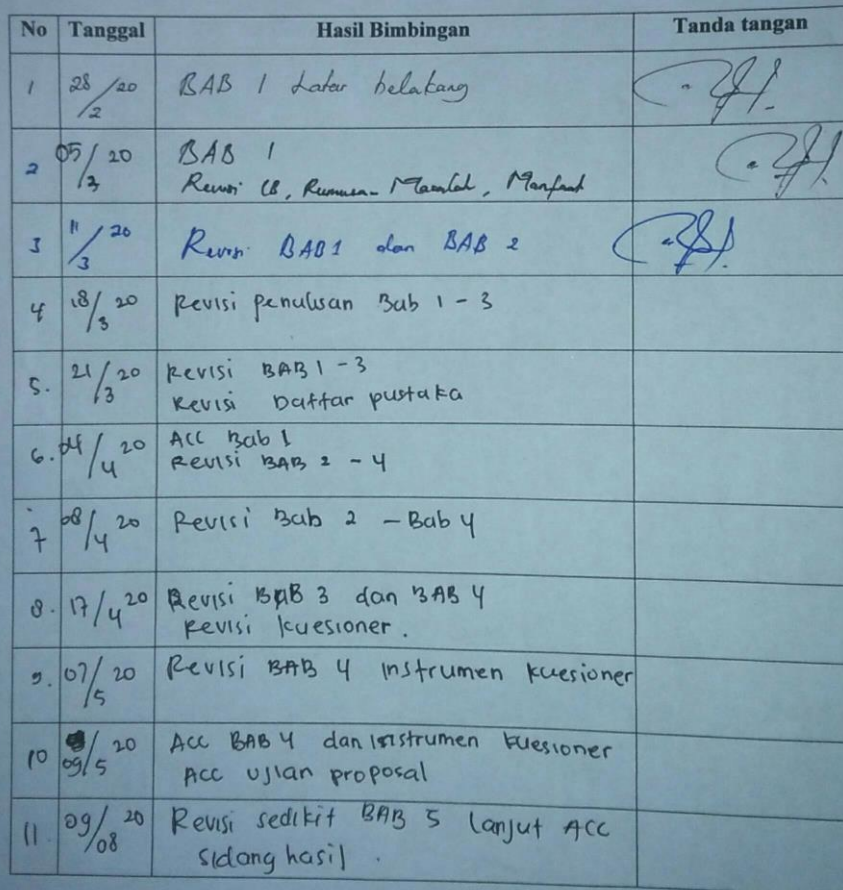 No Tanggal Hasil Bimbingan Tanda tangan
1 28/2 20 BAB 1 Latar belakang
2 05/3 20 BAB 1
Revisi LB, Rumusan Masalah, Manfaat
3 11/3 20 Revisi BAB1 dan BAB 2
4 18/3 20 Revisi penulisan Bab 1 - 3
5. 21/3 20 Revisi BAB 1 - 3
Revisi Daftar pustaka
6. 04/4 20 ACC Bab 1
Revisi BAB 2 - 4
7 08/4 20 Revisi Bab 2 - Bab 4
8. 17/4 20 Revisi BAB 3 dan BAB 4
Revisi kuesioner.
9. 07/5 20 Revisi BAB 4 instrumen kuesioner
10 09/5 20 Acc BAB 4 dan instrumen kuesioner
Acc ujian proposal
11. 09/08 20 Revisi sedikit BAB 5 lanjut ACC
sidang hasil.